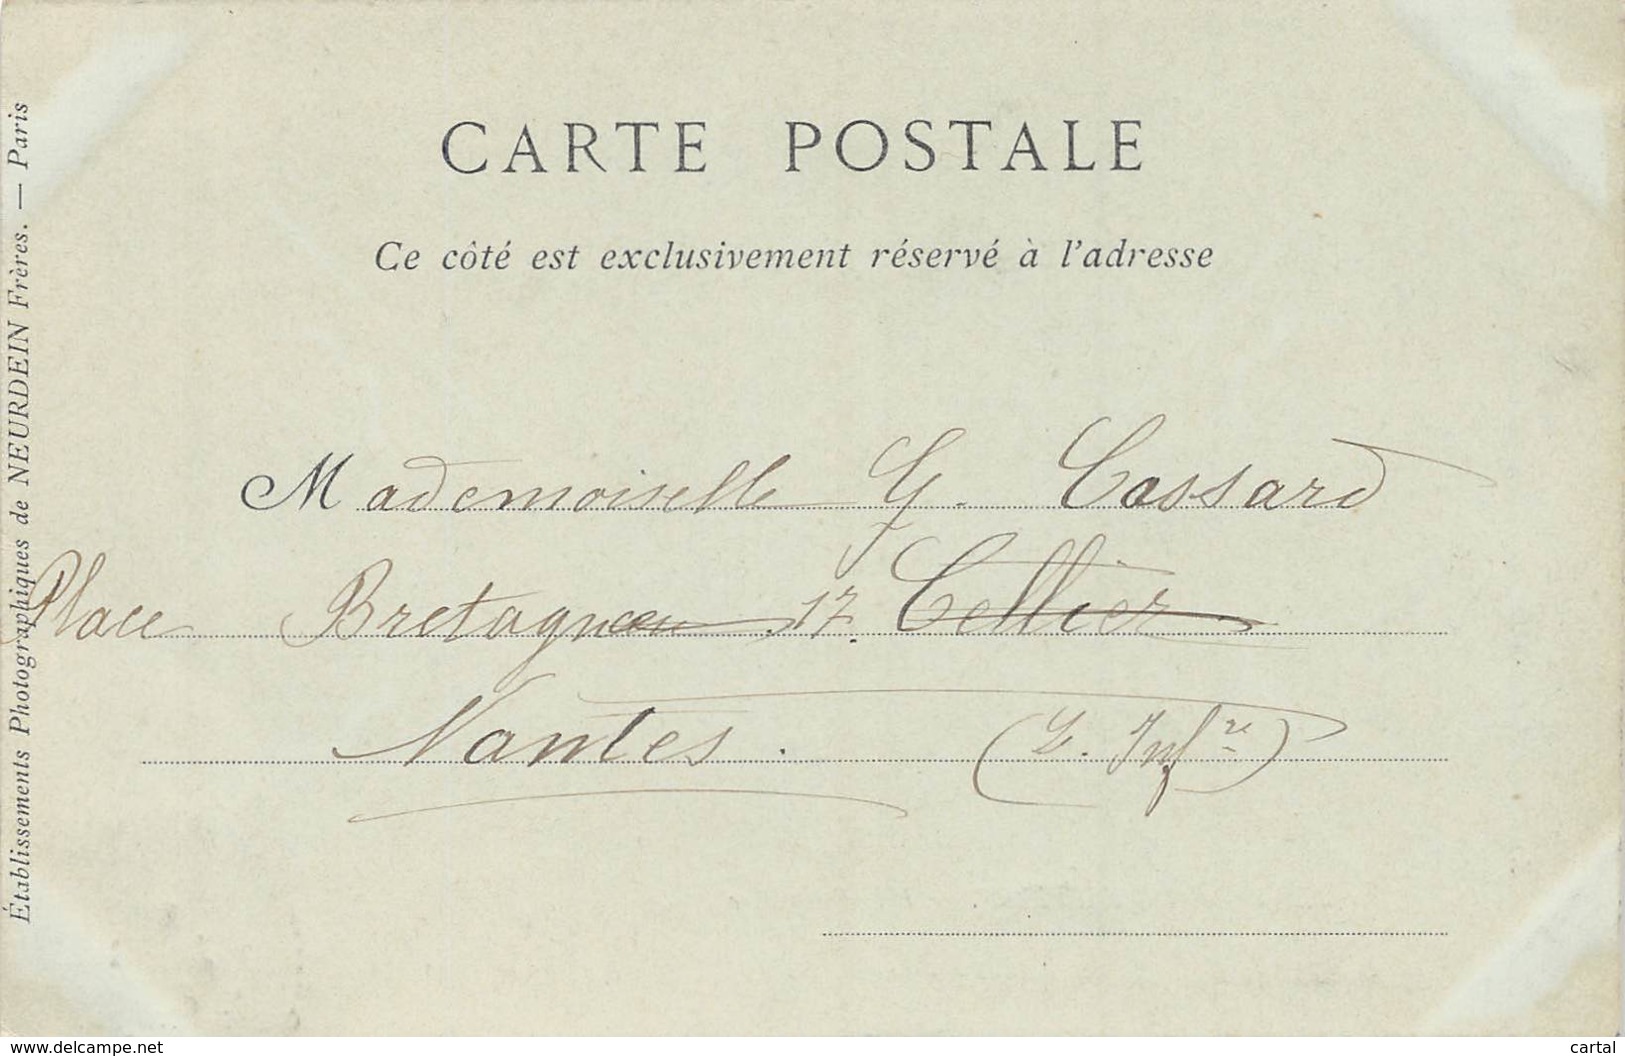 CARTE POSTALE
Ce côté est exclusivement réservé à l'adresse
Mademoiselle G. Cossard
Place Bretagne 17. Cellier
Nantes. (L. Infre)
Établissements Photographiques de NEURDEIN Frères. — Paris
www.delcampe.net
cartal